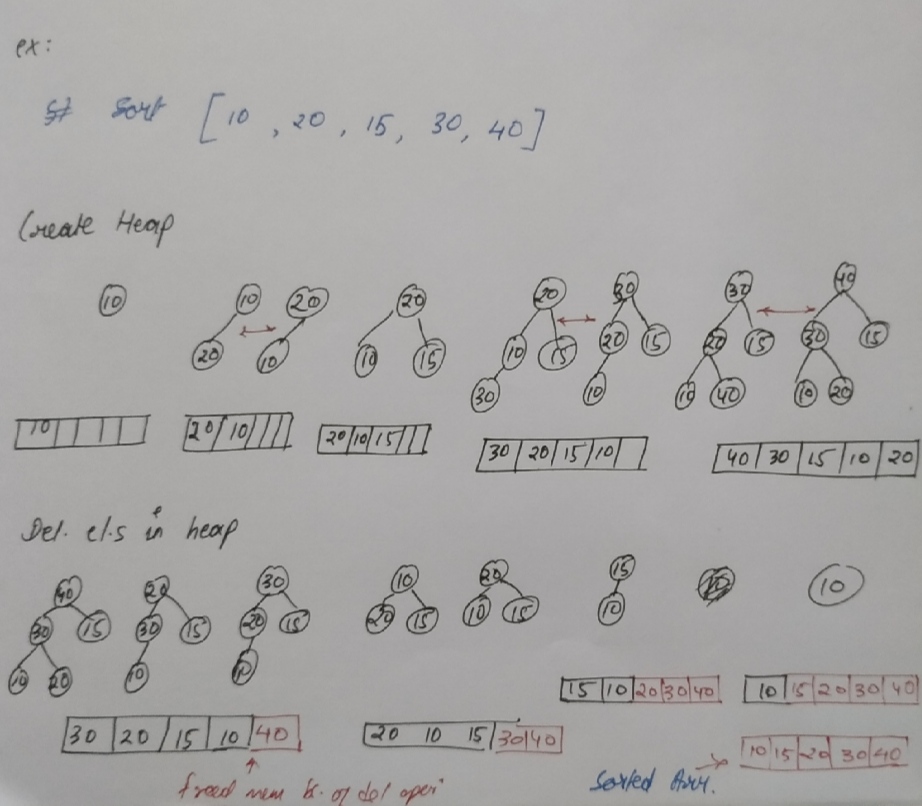 ex:
Sort [10, 20, 15, 30, 40]
Create Heap
10
10 20 20 10
20 10 15
20 10 15 30
30 20 15 10
30 20 15 10 40
40 30 15 10 20
10
20 10
20 10 15
30 20 15 10
40 30 15 10 20
Del. el.s in heap
40 30 15 10 20
20 30 15 10
30 20 15 10
10 20 15
20 10 15
15 10
10
30 20 15 10 40
20 10 15 30 40
15 10 20 30 40
10 15 20 30 40
10 15 20 30 40
freed mem of del oper
Sorted Arr.